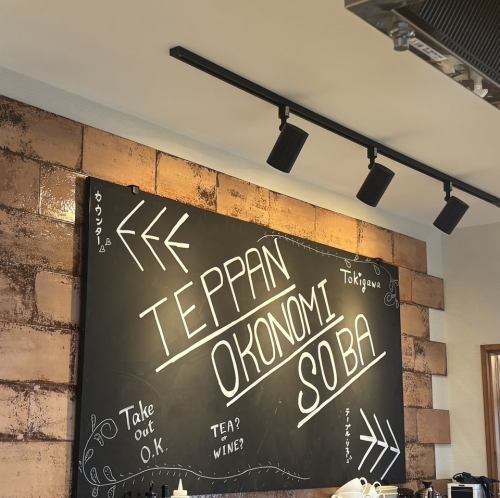 カウンター
TEPPAN
OKONOMI
SOBA
Tokigawa
Take
Out
O.K.
TEA?
or
WINE?